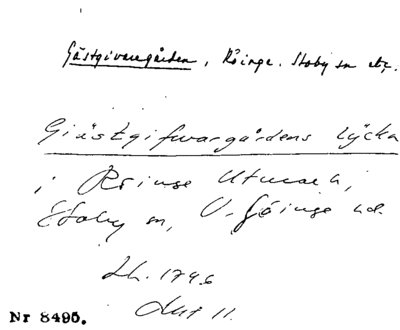 Gästgivaregården, Röinge. Stoby sn etc.
Giästgifwargårdens Lycka
i Röinge Utmark,
Stoby sn, V. Göinge hd.
Lh. 1796
Akt 11.
Nr 8495.